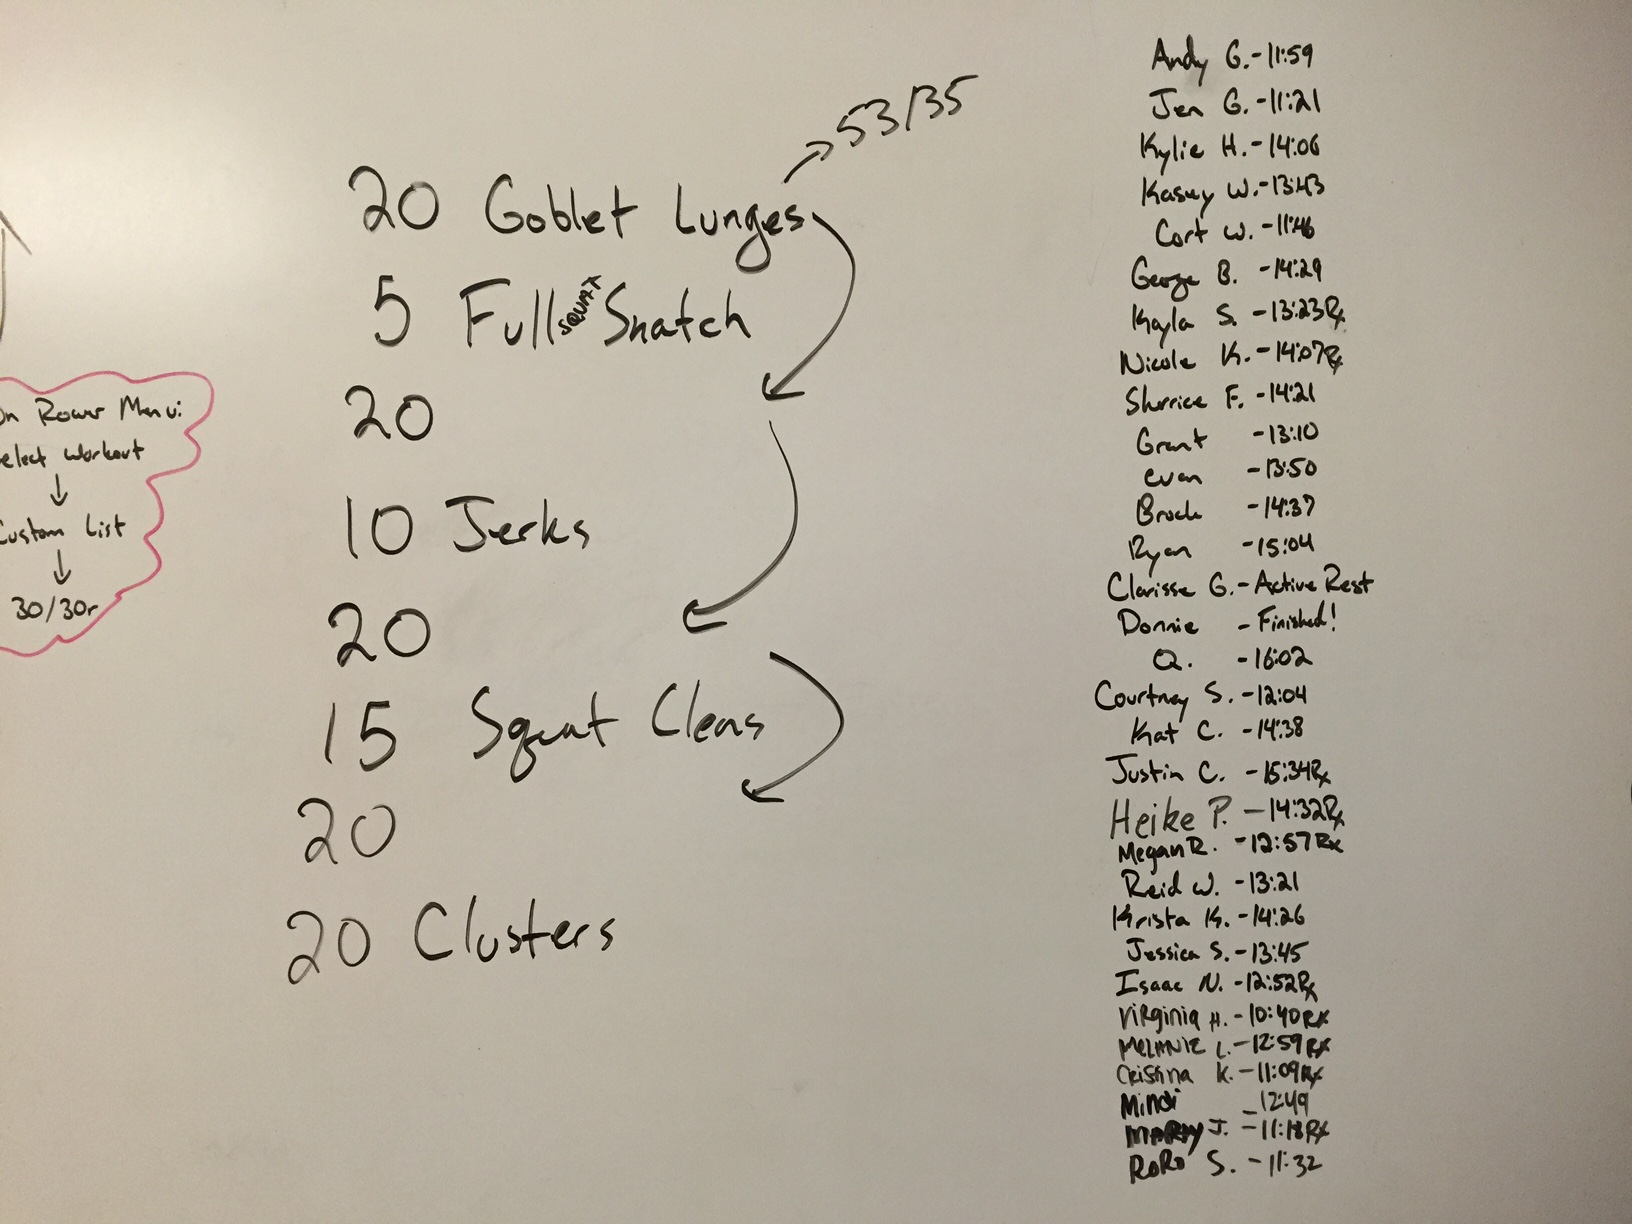 53/35
20 Goblet Lunges
5 Full SQUAT Snatch
20
10 Jerks
20
15 Squat Cleans
20
20 Clusters
On Rower Menu:
elect workout
Custom List
30/30r
Andy G. - 11:59
Jen G. - 11:21
Kylie H. - 14:06
Kasey W. - 13:43
Cort W. - 11:46
George B. - 14:29
Kayla S. - 13:23 Rx
Nicole K. - 14:07 Rx
Sherrice F. - 14:21
Grant - 13:10
Evan - 13:50
Brock - 14:37
Ryan - 15:04
Clarisse G. - Active Rest
Donnie - Finished!
Q. - 16:02
Courtney S. - 12:04
Kat C. - 14:38
Justin C. - 15:34 Rx
Heike P. - 14:32 Rx
Megan R. - 12:57 Rx
Reid W. - 13:21
Krista K. - 14:26
Jessica S. - 13:45
Isaac N. - 12:52 Rx
Virginia H. - 10:40 Rx
MELANIE L. - 12:59 Rx
Cristina K. - 11:09 Rx
Mindi - 12:49
J. - 11:18 Rx
RoRo S. - 11:32